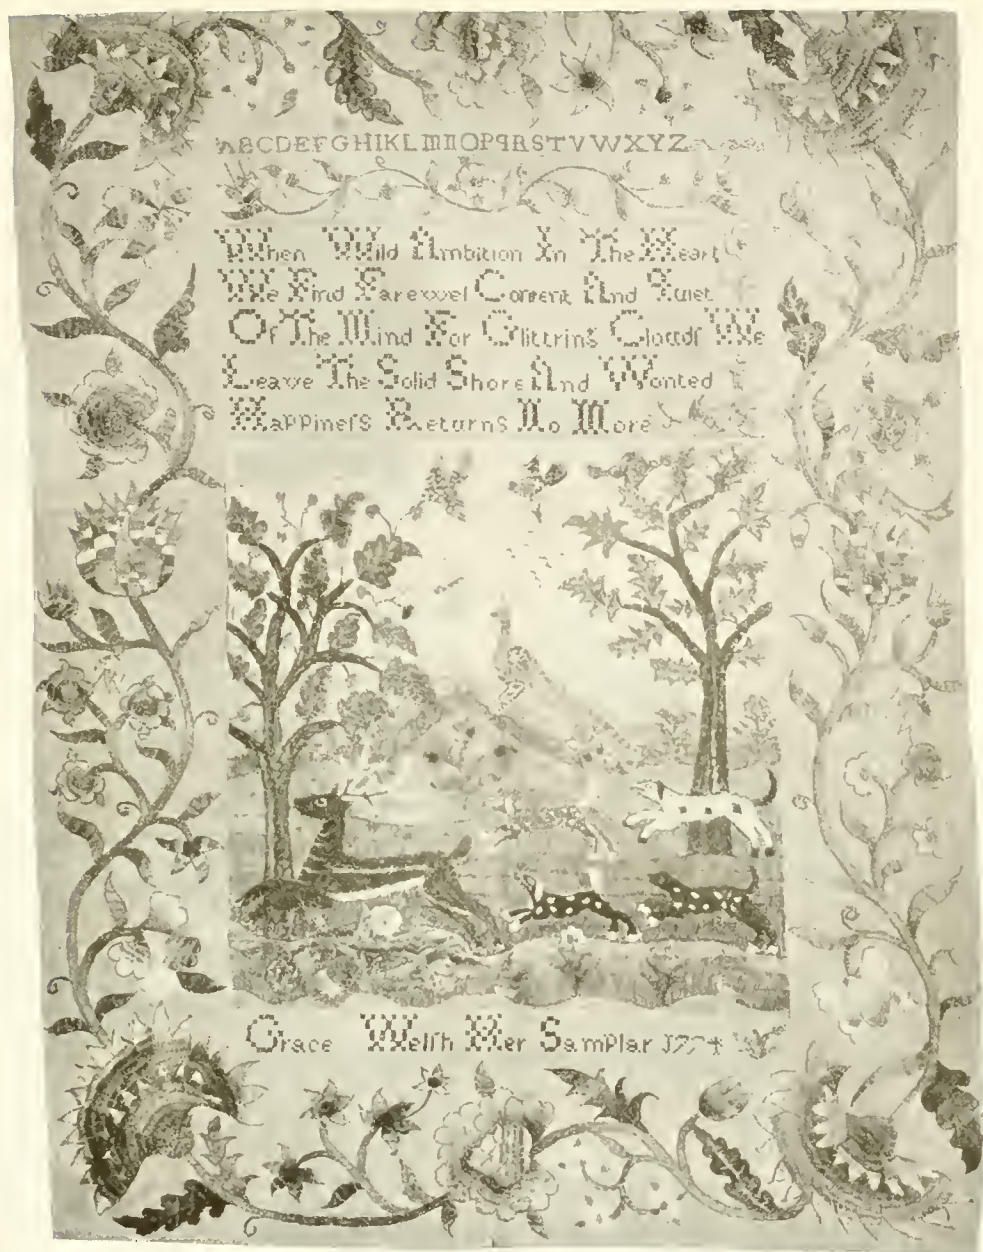 ABCDEFGHIKLMNOPQRSTVWXYZ
When Wild Ambition In The Heart
We Find Farewel Content And Quiet
Of The Mind For Glittring Cloudſ We
Leave The Solid Shore And Wonted
Happineſs Returns No More
Grace Welſh Her Samplar 1774